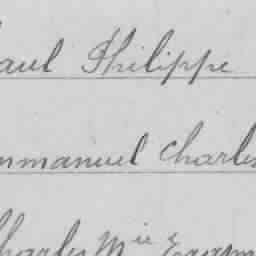 aul Philippe
mmanuel Charles
Charles Mie